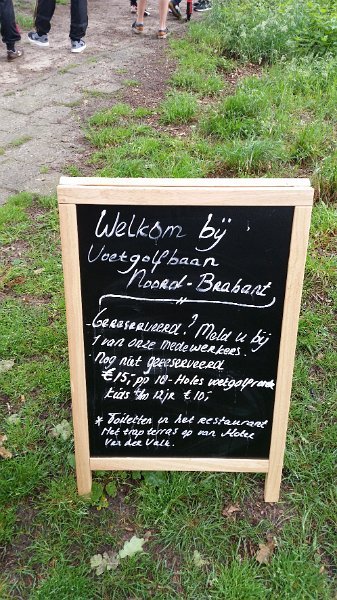 Welkom bij
Voetgolfbaan
Noord-Brabant
Gereserveerd? Meld u bij
1 van onze medewerkers.
Nog niet gereserveerd
€15,- pp 18-Holes voetgolfronde
Kids t/m 12jr €10,-
* Toiletten in het restaurant
Met trap terras op van Hotel
Van der Valk.